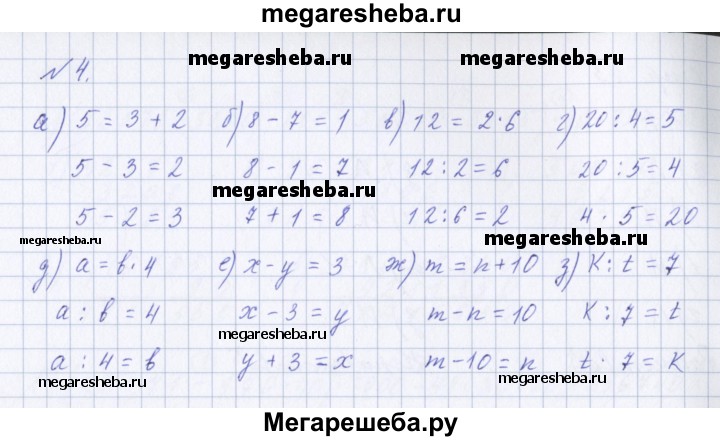 megaresheba.ru
№ 4.
megaresheba.ru megaresheba.ru
а) 5 = 3 + 2 б) 8 - 7 = 1 в) 12 = 2·6 г) 20 : 4 = 5
5 - 3 = 2 8 - 1 = 7 12 : 2 = 6 20 : 5 = 4
megaresheba.ru
5 - 2 = 3 7 + 1 = 8 12 : 6 = 2 4 · 5 = 20
megaresheba.ru megaresheba.ru
д) a = b · 4 е) x - y = 3 ж) m = n + 10 з) K : t = 7
a : b = 4 x - 3 = y m - n = 10 K : 7 = t
megaresheba.ru
a : 4 = b y + 3 = x m - 10 = n t · 7 = K
megaresheba.ru megaresheba.ru
Мегарешеба.ру